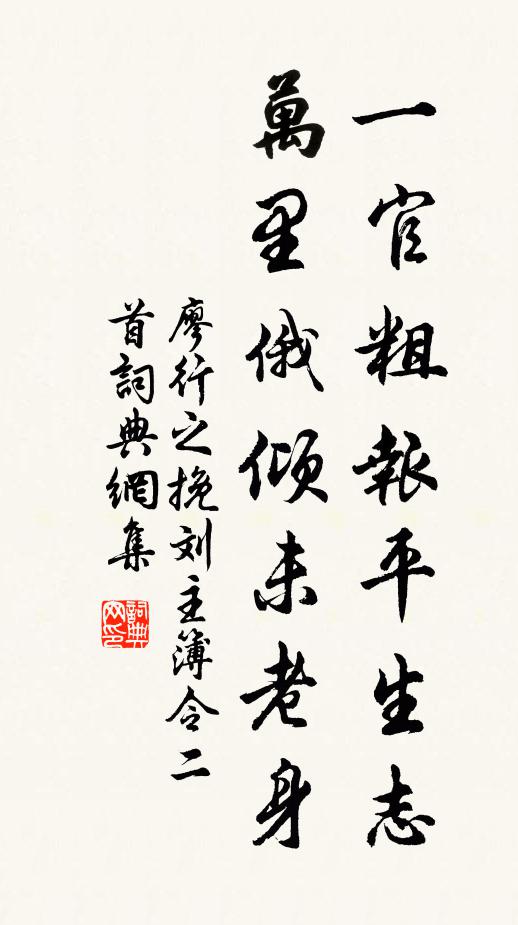 一官粗報平生志
萬里俄傾未老身
廖行之挽刘主簿令二
首詞典網集
詞典网印